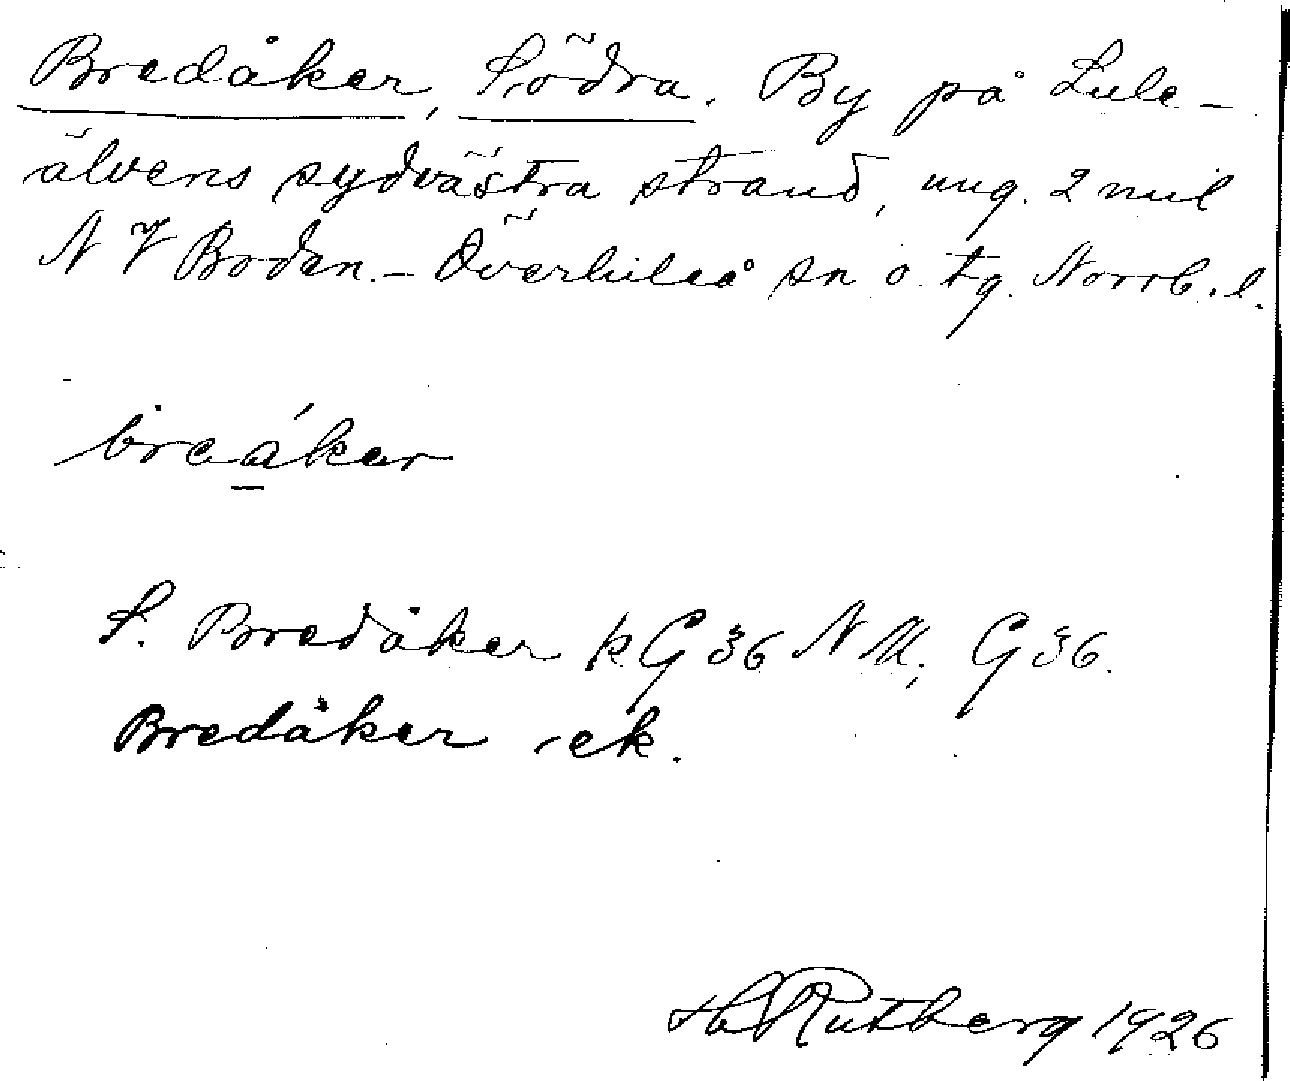 Bredåker, Södra. By på Lule-
älvens sydvästra strand, ung. 2 mil
N V Boden. - Överluleå sn o. tg. Norrb. l.
breåker
S. Bredåker k G 36 N M; G 36.
Bredåker ek.
H Rutberg 1926